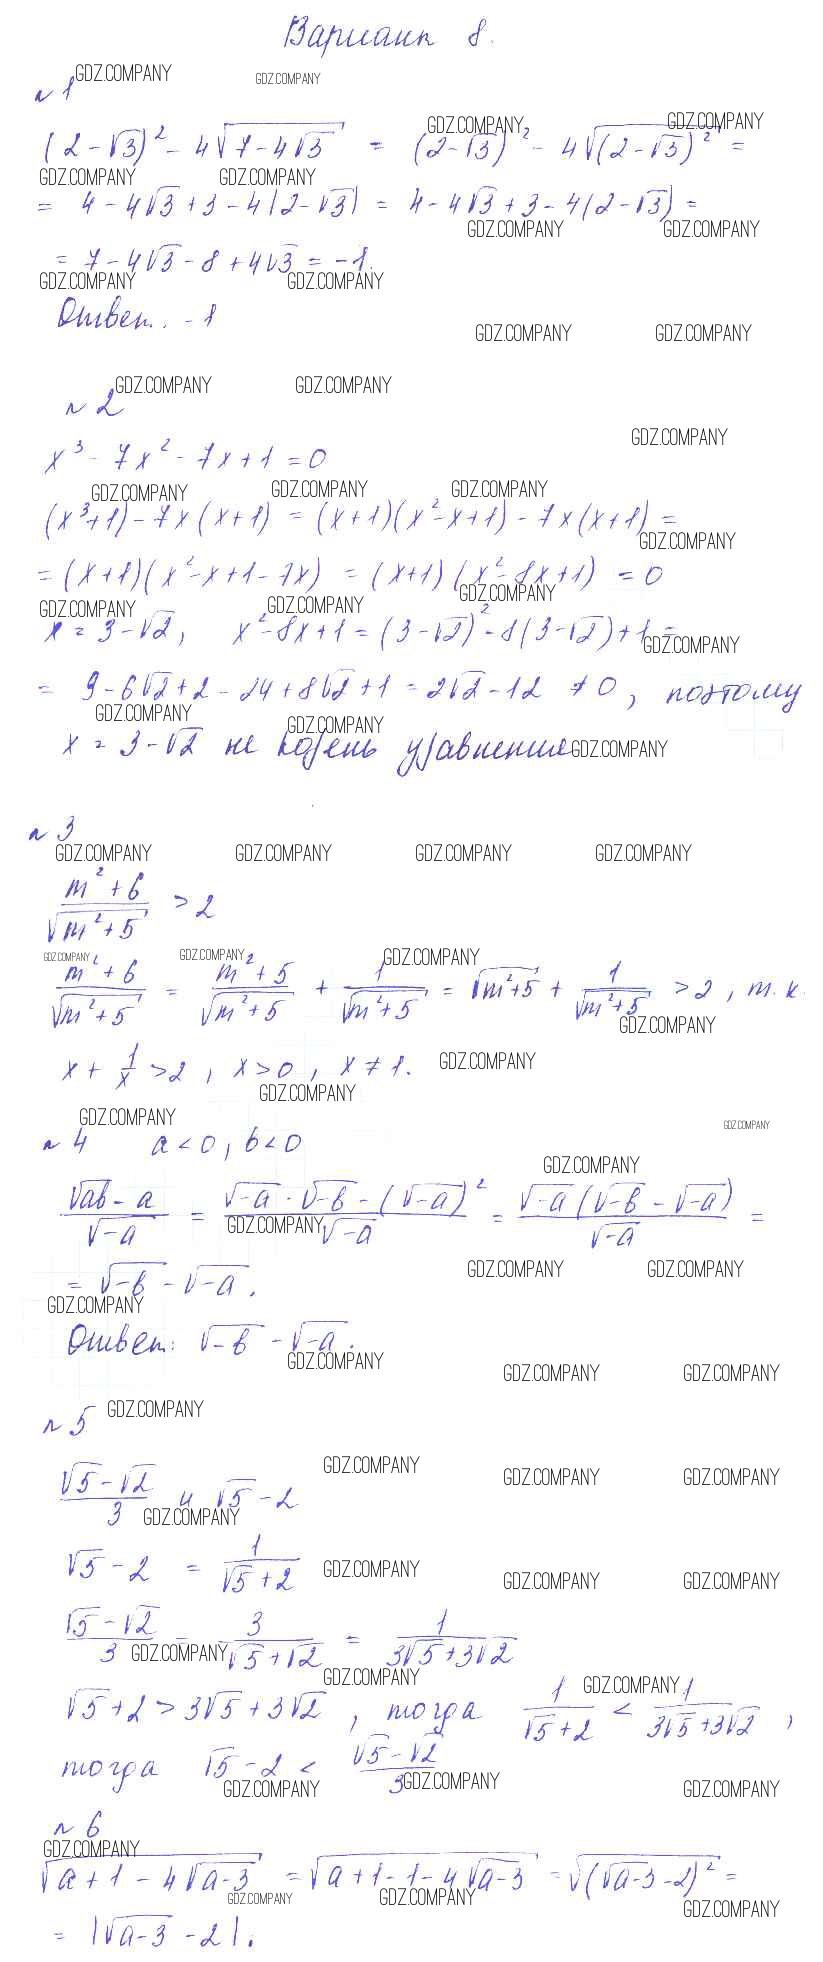 Вариант 8.
GDZ.COMPANY GDZ.COMPANY
№ 1
GDZ.COMPANY GDZ.COMPANY
(2-√3)² - 4√(7-4√3) = (2-√3)² - 4√((2-√3)²) =
GDZ.COMPANY GDZ.COMPANY
= 4 - 4√3 + 3 - 4|2-√3| = 4 - 4√3 + 3 - 4(2-√3) =
GDZ.COMPANY GDZ.COMPANY
= 7 - 4√3 - 8 + 4√3 = -1.
GDZ.COMPANY GDZ.COMPANY
Ответ: -1
GDZ.COMPANY GDZ.COMPANY
GDZ.COMPANY GDZ.COMPANY
№ 2
GDZ.COMPANY
x³ - 7x² - 7x + 1 = 0
GDZ.COMPANY GDZ.COMPANY GDZ.COMPANY
(x³+1) - 7x(x+1) = (x+1)(x²-x+1) - 7x(x+1) =
GDZ.COMPANY
= (x+1)(x²-x+1-7x) = (x+1)(x²-8x+1) = 0
GDZ.COMPANY GDZ.COMPANY GDZ.COMPANY
x = 3-√2, x²-8x+1 = (3-√2)²-8(3-√2)+1 =
GDZ.COMPANY
= 9-6√2+2-24+8√2+1 = 2√2-12 ≠ 0, поэтому
GDZ.COMPANY GDZ.COMPANY
x = 3-√2 не корень уравнения
GDZ.COMPANY
№ 3
GDZ.COMPANY GDZ.COMPANY GDZ.COMPANY GDZ.COMPANY
(m²+6)/√(m²+5) > 2
GDZ.COMPANY GDZ.COMPANY GDZ.COMPANY
(m²+6)/√(m²+5) = (m²+5)/√(m²+5) + 1/√(m²+5) = √(m²+5) + 1/√(m²+5) > 2, т.к.
GDZ.COMPANY
x + 1/x > 2, x > 0, x ≠ 1.
GDZ.COMPANY
GDZ.COMPANY
GDZ.COMPANY GDZ.COMPANY
№ 4 a < 0, b < 0
GDZ.COMPANY
(√ab - a)/√-a = (√-a · √-b - (√-a)²)/√-a = √-a(√-b - √-a)/√-a =
GDZ.COMPANY
GDZ.COMPANY GDZ.COMPANY
= √-b - √-a.
GDZ.COMPANY
Ответ: √-b - √-a.
GDZ.COMPANY GDZ.COMPANY GDZ.COMPANY
GDZ.COMPANY
№ 5
GDZ.COMPANY GDZ.COMPANY GDZ.COMPANY
(√5-√2)/3 и √5-2
GDZ.COMPANY
√5-2 = 1/(√5+2)
GDZ.COMPANY GDZ.COMPANY GDZ.COMPANY
(√5-√2)/3 = 3/(√5+√2) = 1/(3√5+3√2)
GDZ.COMPANY
GDZ.COMPANY GDZ.COMPANY
√5+2 > 3√5+3√2, тогда 1/(√5+2) < 1/(3√5+3√2),
тогда √5-2 < (√5-√2)/3
GDZ.COMPANY GDZ.COMPANY GDZ.COMPANY
№ 6
GDZ.COMPANY
√(a+1-4√(a-3)) = √(a+1-1-4√(a-3)) = √((√(a-3)-2)²) =
GDZ.COMPANY GDZ.COMPANY GDZ.COMPANY
= |√(a-3)-2|.